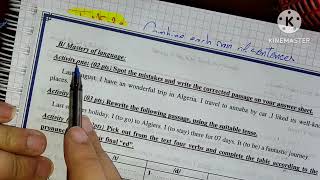 Combine each pair of sentences
KINEMASTER
B/ Mastery of language:
Activity one: (02 pts) Spot the mistakes and write the corrected passage on your answer sheet.
Last August. I have an wonderful trip in Algeria. I travel to annaba by car .I liked its well-
places.
Activity (03 pts) Rewrite the following passage, using the suitable tense.
Last holiday. I (to go) to Algiers. I (to stay) there for 07 days. It (to be) a fantastic journey
Activity pts) Pick out from the text four verbs and complete the table according to the
pronunciation final "ed".